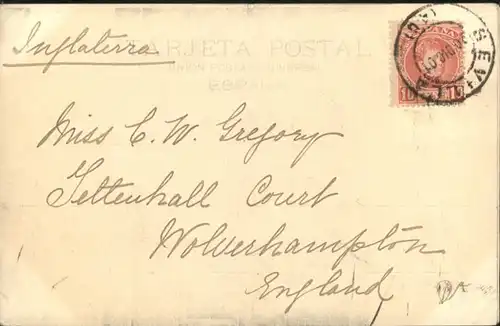 Inglaterra
TARJETA POSTAL
UNION POSTAL UNIVERSAL
ESPAÑA
10 10
SEVI
Miss C. W. Gregory
Tettenhall Court
Wolverhampton
England